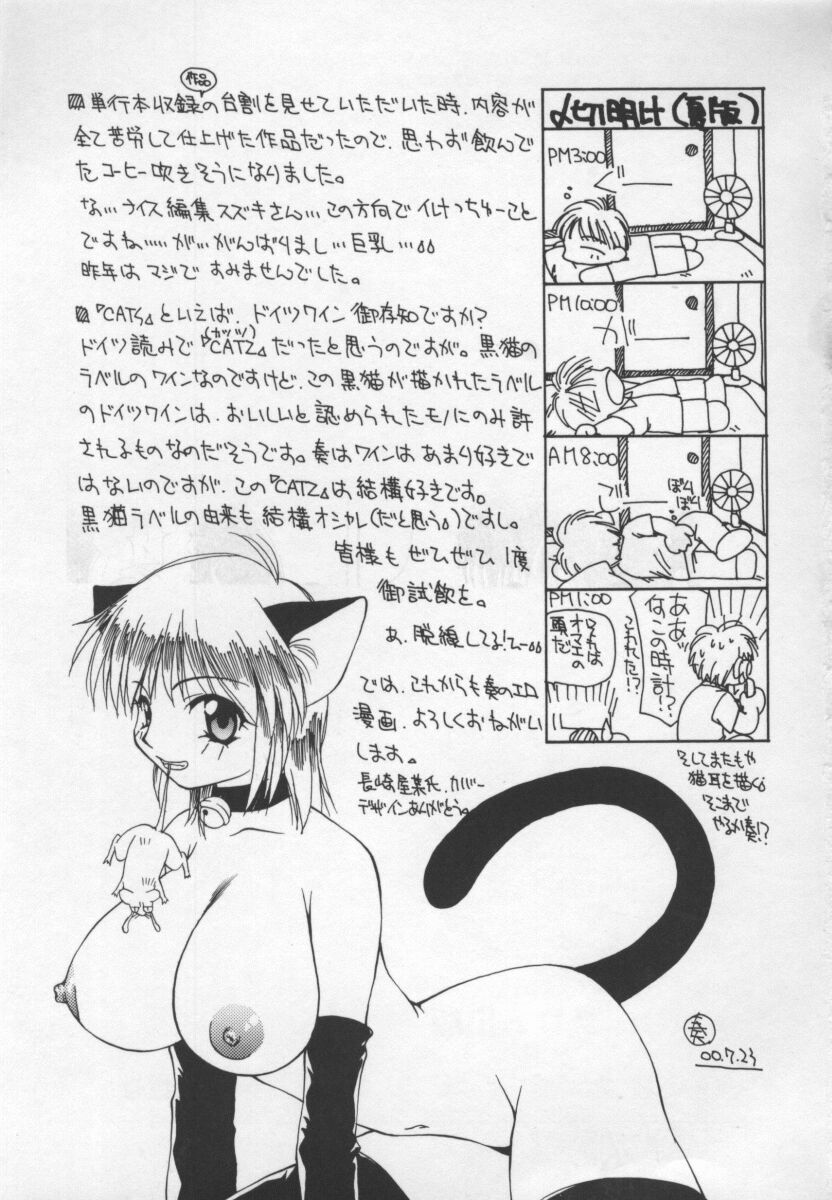 作品
▨単行本収録の台割を見せていただいた時、内容が
全て苦労して仕上げた作品だったので、思わず飲んで
たコーヒー吹きそうになりました。
な…ナイス編集スズキさん…この方向でイけっちゅーこと
ですね……が…がんばりまし…巨乳…
昨年はマジですみませんでした。
▨『CATS』といえば、ドイツワイン御存知ですか?
(カッツ)
ドイツ読みで『CATZ』だったと思うのですが。黒猫の
ラベルのワインなのですけど、この黒猫が描かれたラベル
のドイツワインは、おいしいと認められたモノにのみ許
されるものなのだそうです。奏はワインはあまり好きで
はないのですが、この『CATZ』は結構好きです。
黒猫ラベルの由来も結構オシャレ(だと思う)ですし。
皆様もぜひぜひ1度
御試飲を。
あ、脱線してる!
では、これからも奏のエロ
漫画、よろしくおねがい
します。
長崎屋葉氏、カバー
デザインありがとう。
〆切明け(夏版)
PM3:00
PM10:00
ガ
AM8:00
ぼり
ぼり
PM1:00
ああッ
なにこの時計!?
こわれた!?
オマエの
頭だ
そしてまたもや
猫耳を描く
そこまで
やるか奏!?
奏
00.7.23